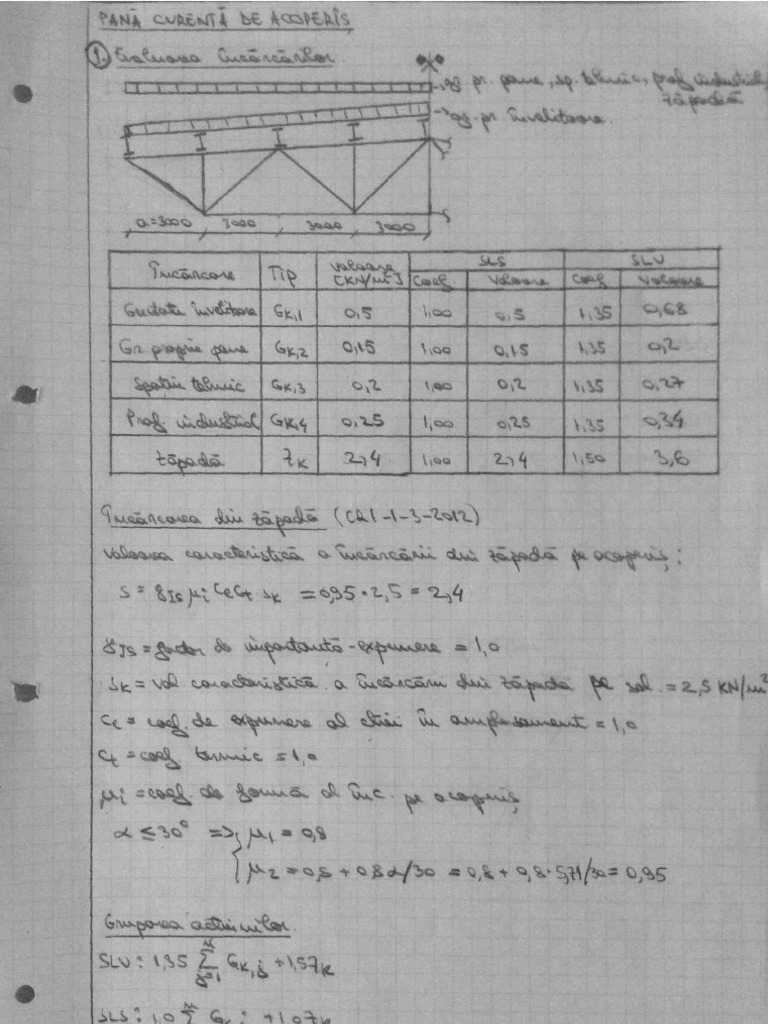 PANĂ CURENTĂ DE ACOPERIȘ
1. Evaluarea încărcărilor
→ g pr. pane, sp. tehnic, prof. industrial,
zăpadă
→ g. pr. învelitoare.
a=3000 3000 3000 3000
Încărcare Tip Valoare [KN/m²] SLS SLU
Coef Valoare Coef Valoare
Greutate învelitoare GK,1 0,5 1,00 0,5 1,35 0,68
Gr. proprie pane GK,2 0,15 1,00 0,15 1,35 0,2
Spațiu tehnic GK,3 0,2 1,00 0,2 1,35 0,27
Prof. industrial GK,4 0,25 1,00 0,25 1,35 0,34
Zăpadă ZK 2,4 1,00 2,4 1,50 3,6
Încărcarea din zăpadă (CR1-1-3-2012)
Valoarea caracteristică a încărcării din zăpadă pe acoperiș:
S = γIs μi Ce Ct · sK = 0,95 · 2,5 = 2,4
γIS = factor de importanță-expunere = 1,0
sK = val caracteristică a încărcării din zăpadă pe sol = 2,5 KN/m²
Ce = coef. de expunere al în amplasament = 1,0
Ct = coef termic = 1,0
μi = coef. de formă al înc. pe acoperiș
α ≤ 30° => { μ1 = 0,8
μ2 = 0,8 + 0,8α/30 = 0,8 + 0,8·5,71/30 = 0,95
Gruparea acțiunilor
SLU: 1,35 Σ j=1 n GK,j + 1,5ZK
SLS: 1,0 Σ GK,j + 1,0ZK